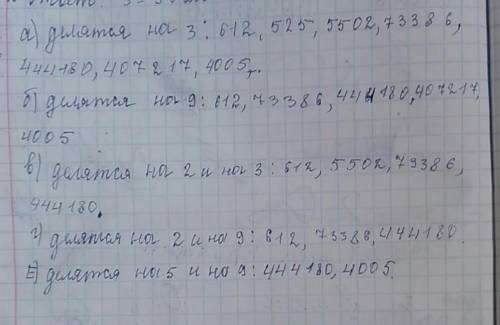 а) делятся на 3: 612, 525, 5502, 73386,
444180, 407217, 4005,.
б) делятся на 9: 612, 73386, 444180, 407217,
4005
в) делятся на 2 и на 3: 612, 5502, 73386,
444180.
г) делятся на 2 и на 9: 612, 73386, 444180.
Е) делятся на 5 и на 9: 444180, 4005.